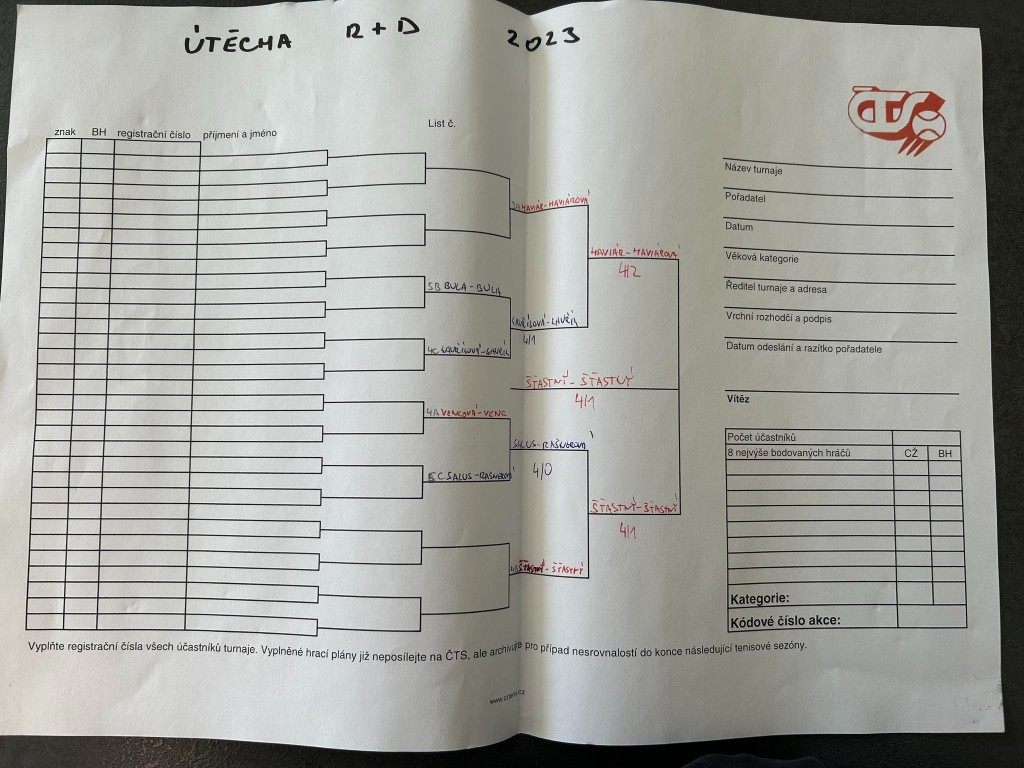 ÚTĚCHA R+D 2023
List č.
ČTS
znak BH registrační číslo příjmení a jméno
HAVIÁR-HAVIÁROVÁ
HAVIÁR-HAVIÁROVÁ
4/2
5B BULA-BULA
4/1
4C
ŠŤASTNÝ-ŠŤASTNÝ
4/1
4A VENCOVÁ-VENC
SALUS-RAŠNEROVÁ
4/0
5C SALUS-RAŠNEROVÁ
ŠŤASTNÝ-ŠŤASTNÝ
4/1
ŠŤASTNÝ-ŠŤASTNÝ
Název turnaje
Pořadatel
Datum
Věková kategorie
Ředitel turnaje a adresa
Vrchní rozhodčí a podpis
Datum odeslání a razítko pořadatele
Vítěz
Počet účastníků
8 nejvýše bodovaných hráčů CŽ BH
Kategorie:
Kódové číslo akce:
Vyplňte registrační čísla všech účastníků turnaje. Vyplněné hrací plány již neposílejte na ČTS, ale archivujte pro případ nesrovnalostí do konce následující tenisové sezóny.